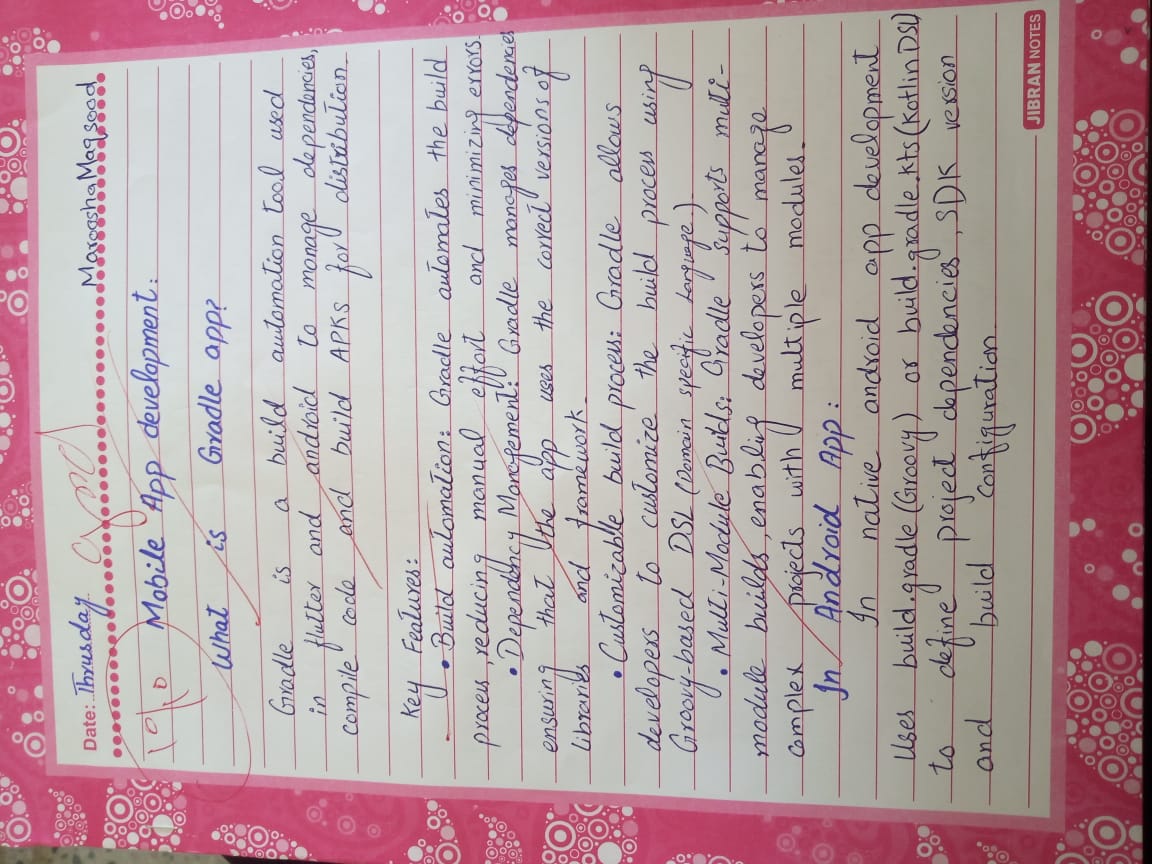 Date: Thrusday Maroosha Maqsood
10/10 Good
Mobile App development:
What is Gradle app?
Gradle is a build automation tool used
in flutter and android to manage dependancies,
compile code and build APKs for distribution.
Key Features:
• Build automation: Gradle automates the build
process, reducing manual effort and minimizing errors.
• Dependency Management: Gradle manages dependencies
ensuring that the app uses the correct versions of
libraries and framework.
• Customizable build process: Gradle allows
developers to customize the build process using
Groovy-based DSL (Domain specific Language.)
• Multi-Module Builds: Gradle supports multi-
module builds, enabling developers to manage
complex projects with multiple modules.
In Android App:
In native android app development
uses build.gradle (Groovy) or build.gradle.kts (Kotlin DSL)
to define project dependencies, SDK version
and build configuration
JIBRAN NOTES